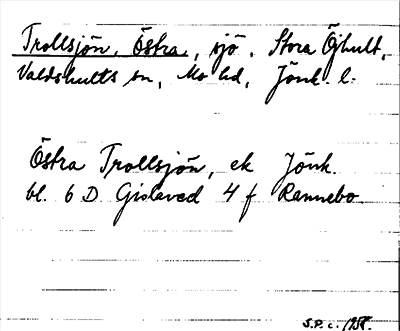 Trollsjön, Östra, sjö, Stora Öjhult,
Valdshults sn, Mo hd, Jönk. l.
Östra Trollsjön, ek Jönk.
bl. 6 D Gislaved 4 f Rannebo
S.P. c. 1958.